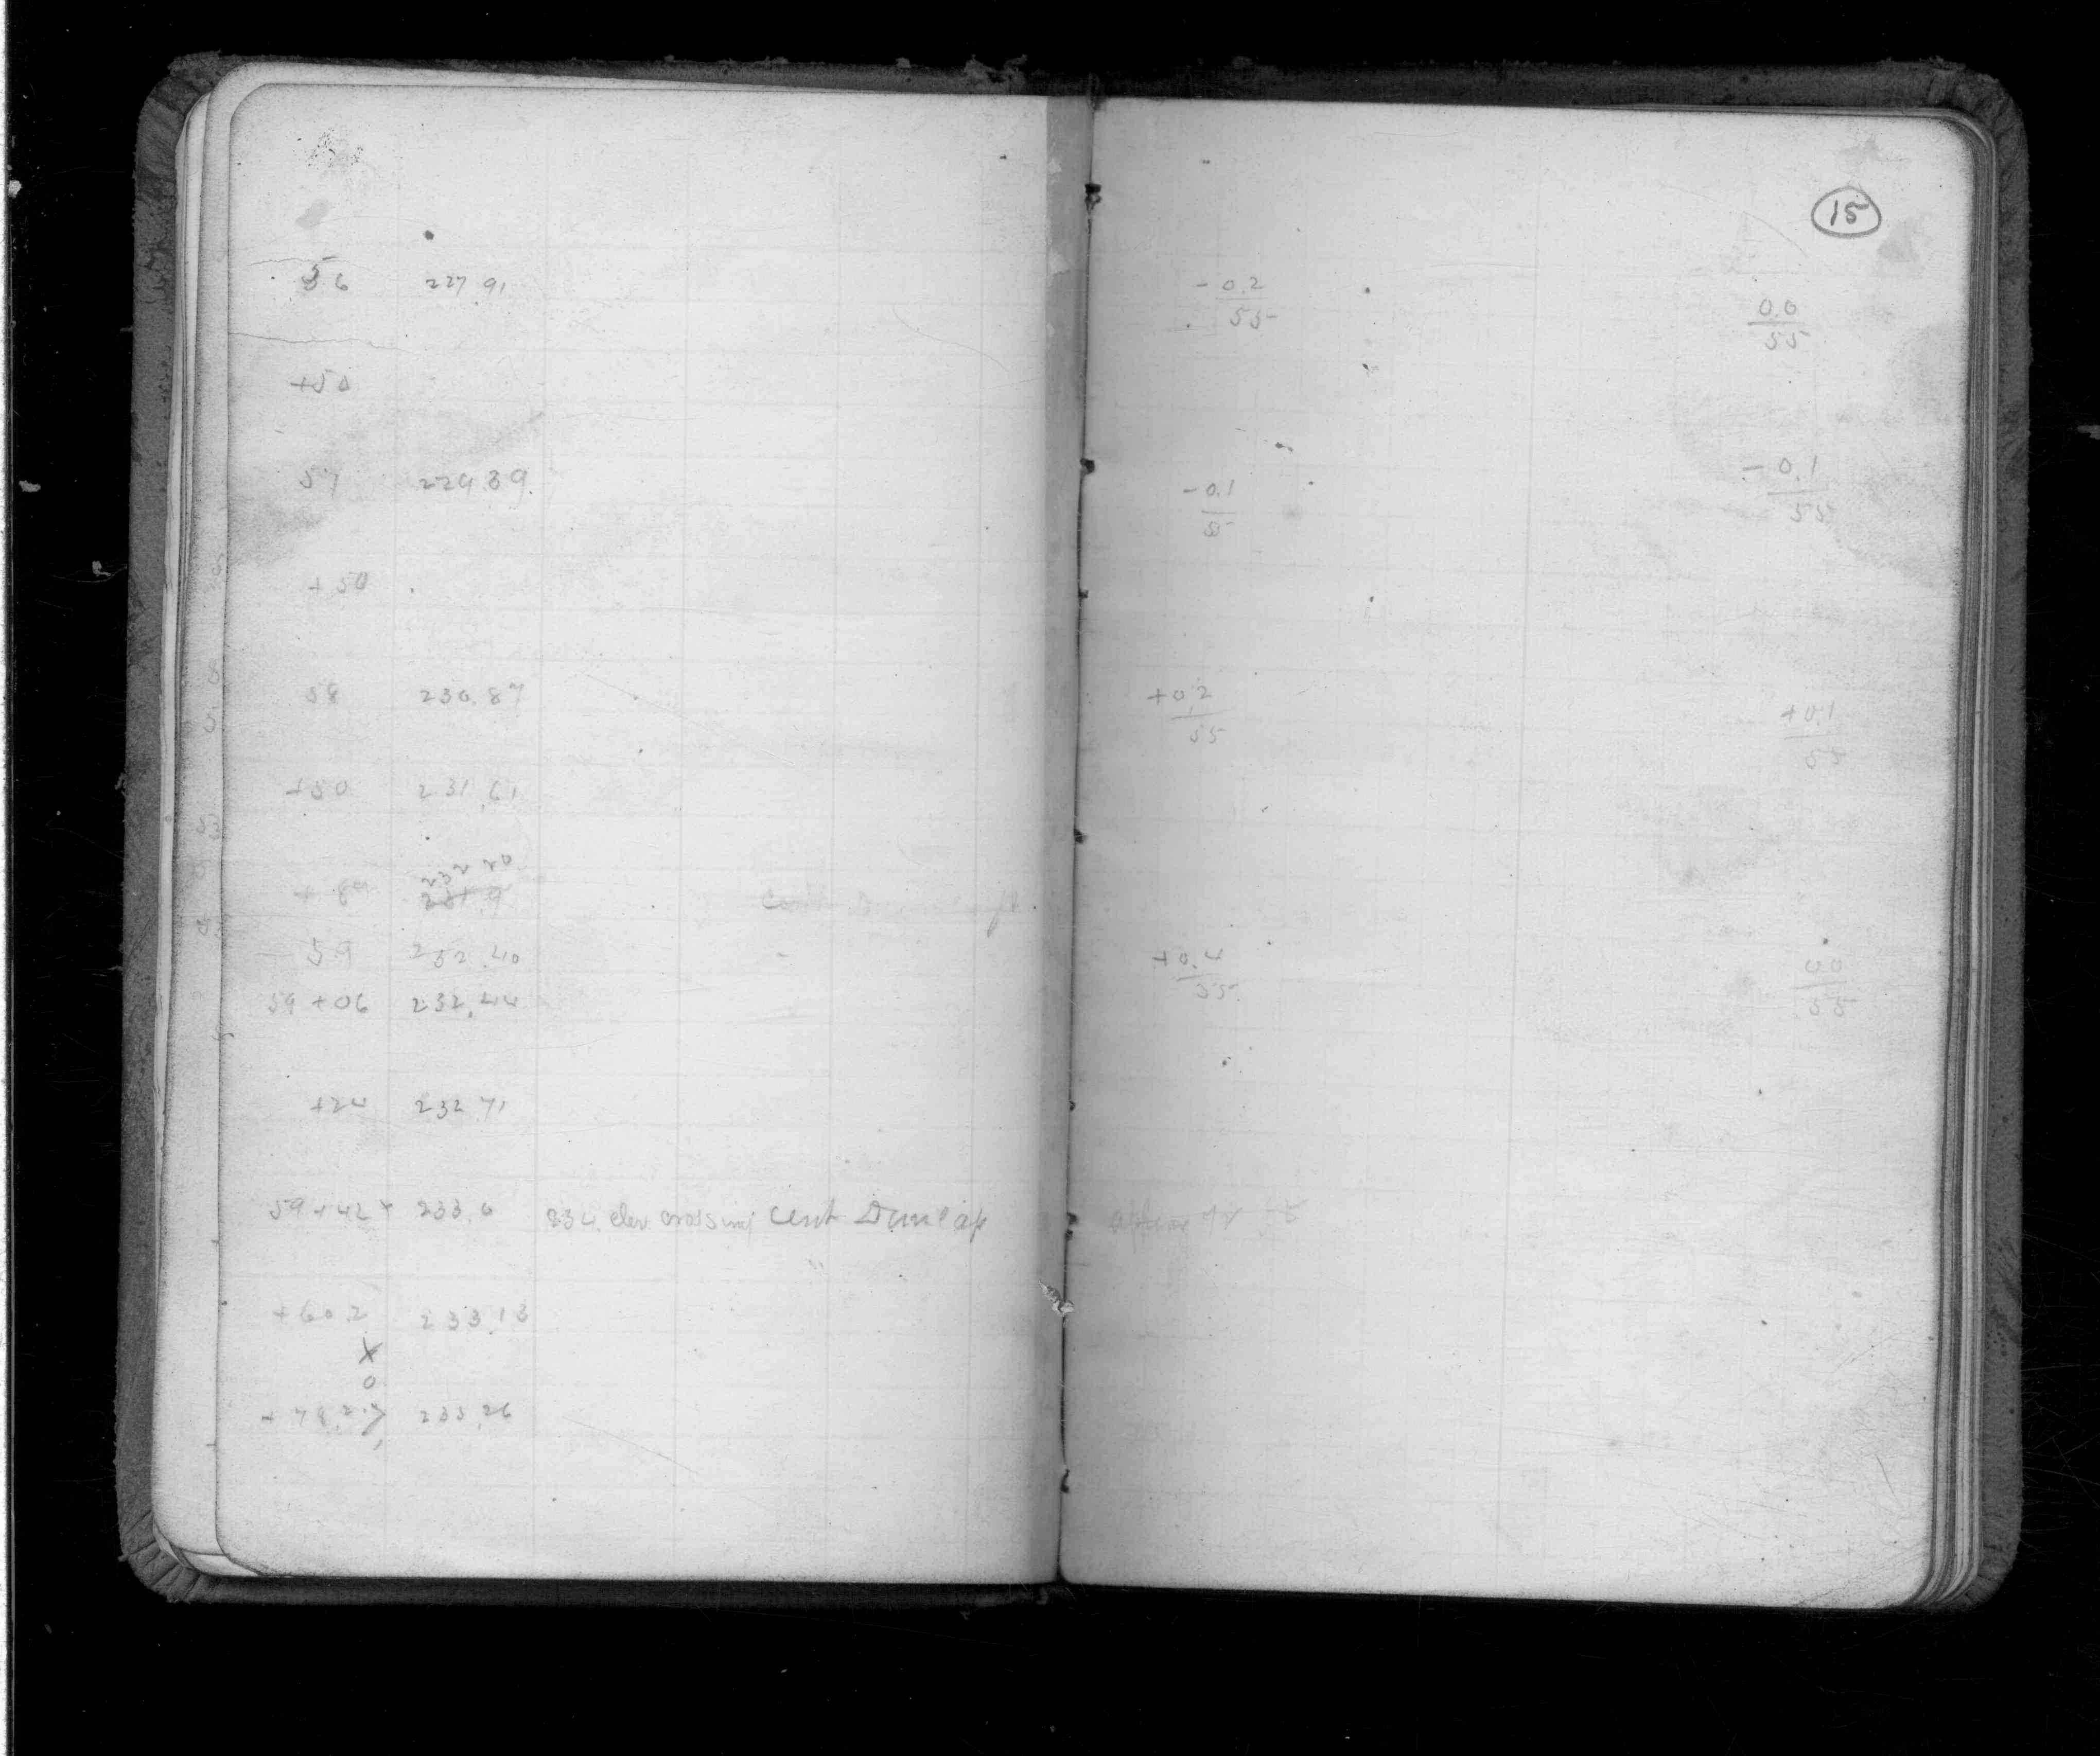 15
56 227.91 -0.2/55 0.0/55
+50
57 229.39 -0.1/55 -0.1/55
+50
58 230.87 +0.2/55 +0.1/55
+50 231.61
232 20
+ 89 231.9
59 232.40 +0.4/55 0.0/55
59 + 06 232.44
+24 232.71
59+42 233.0 234. elev crossing cent Dunlap
+60.2 233.13
X
0
+78.2 233.26